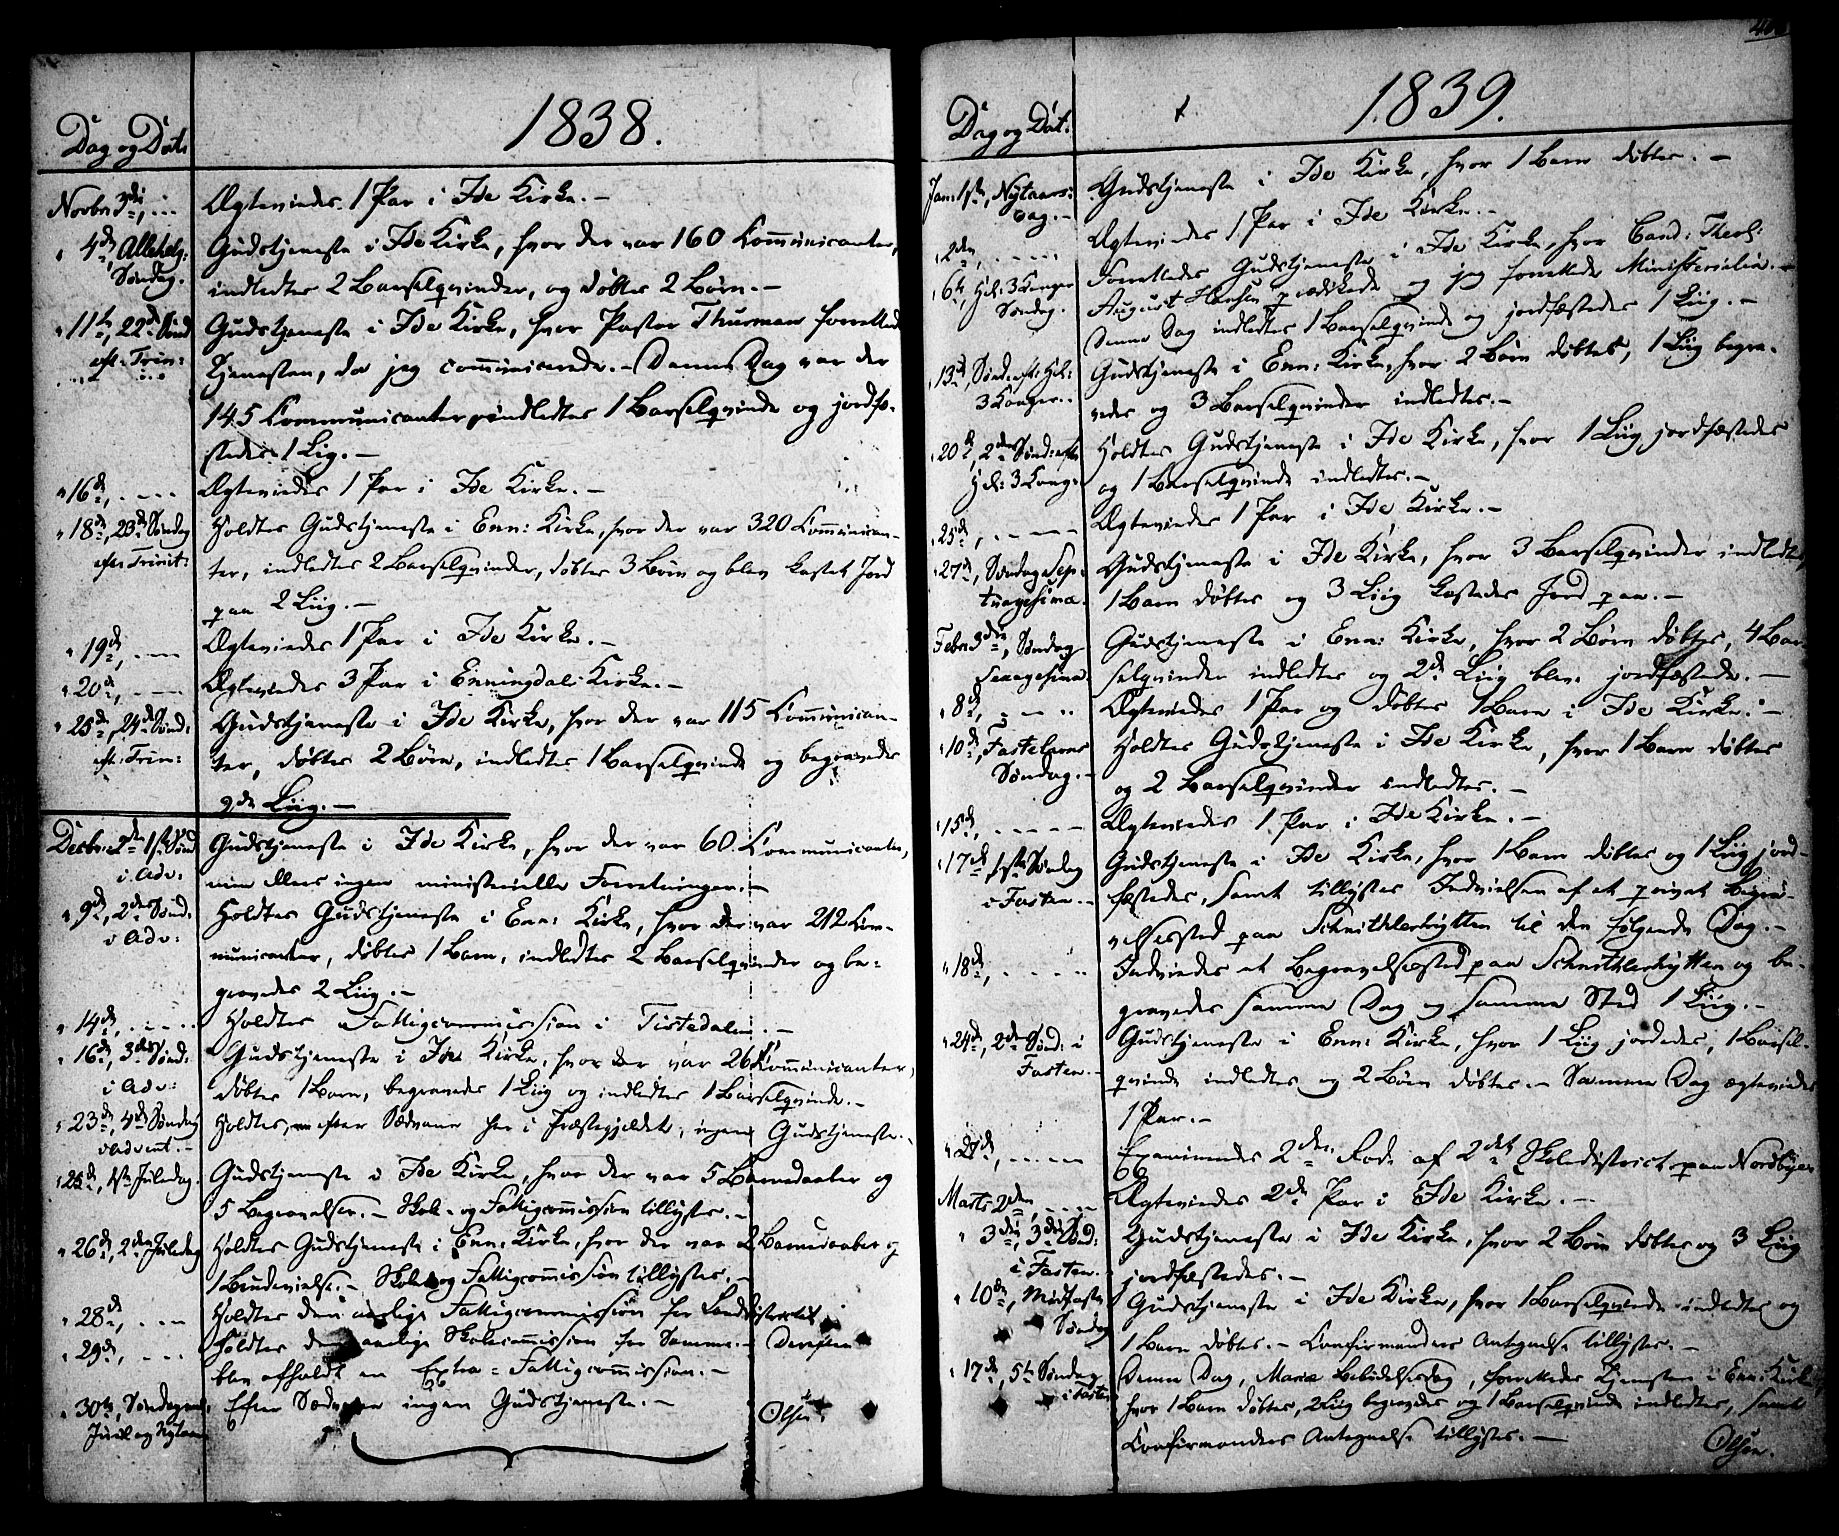 Dag og Dat:
1838.
Novbr 3di, ...
Ægteviedes 1 Par i Ide Kirke. –
" 4de, Allehelg:
Søndag.
Gudstjeneste i Ide Kirke, hvor der var 160 Communicanter,
indledtes 2 Barselqvinder, og døbtes 2 Børn. –
" 11te, 22de Sønd
eft: Trin:
Gudstjeneste i Ide Kirke, hvor Pastor Thurman forrettede
Tjenesten, da jeg communicerede. – Denne Dag var der
145 Communicanter, indledtes 1 Barselqvinde og jordfæ-
stedes 1 Lig. –
" 16de, . – – –
Ægteviedes 1 Par i Ide Kirke. –
" 18de, 23de Søndag
efter Trinit:
Holdtes Gudstjeneste i Enn: Kirke, hvor der var 320 Communican-
ter, indledtes 2 Barselqvinder, døbtes 3 Børn og blev kastet Jord
paa 2 Liig. –
" 19de, . – –
Ægteviedes 1 Par i Ide Kirke. –
" 20de, . – –
Ægteviedes 3 Par i Enningdals Kirke. –
" 25de, 24de Sønd:
eft: Trin:
Gudstjeneste i Ide Kirke, hvor der var 115 Communican-
ter, døbtes 2 Børn, indledtes 1 Barselqvinde og begravedes
2de Liig. –
Decbr: 2den 1ste Sønd
i Adv:
Gudstjeneste i Ide Kirke, hvor der var 60 Communicanter,
men ellers ingen ministerielle Forretninger. –
" 9de, 2den Sønd:
i Adv:
Holdtes Gudstjeneste i Enn: Kirke, hvor der var 212 Com-
municanter, døbtes 1 Barn, indledtes 2 Barselqvinder og be-
gravedes 2 Liig. –
" 14de, . – – –
Holdtes Fattigcommission i Tistedalen. –
" 16de, 3die Sønd:
i Adv:
Gudstjeneste i Ide Kirke, hvor der var 26 Communicanter,
døbtes 1 Barn, begravedes 1 Liig og indledtes 1 Barselqvinde. –
" 23de, 4de Søndag
i Advent. –
Holdtes, efter Sædvane her i Præstegjeldet, ingen Gudstjeneste. –
" 25de, 1ste Juledag.
Gudstjeneste i Ide Kirke, hvor der var 5 Barnedaaber og
5 Begravelser. – Skole- og Fattigcommission tillystes. –
" 26de, 2den Juledag
Holdtes Gudstjeneste i Enn: Kirke, hvor der var 2 Barnedaaber og
1 Brudevielse. – Skole og Fattigcommission tillystes. –
" 28de, . – –
Holdtes den aarlige Fattigcommission for Landdistrictet
" 29de, . – –
Holdtes den aarlige Skolecommission for Samme. – Derefter
blev afholdt en Extra-Fattigcommission. –
" 30te, Søndag ml.
Juul og Nytaar
Efter Sædvane ingen Gudstjeneste. –
Olsen.
Dag og Dat:
1839.
Jan: 1ste, Nytaars-
dag. –
Gudstjeneste i Ide Kirke, hvor 1 Barn døbtes. –
" 2den, . – – –
Ægteviedes 1 Par i Ide Kirke. –
" 6te, Hel: 3 Konger
Søndag.
Forrettedes Gudstjeneste i Ide Kirke, hvor Cand: Theol:
August Hansen prædikede og jeg forrettede Ministerialia. –
Denne Dag indledtes 1 Barselqvinde og jordfæstedes 1 Liig. –
" 13de, Sønd. eft: Hel:
3 Konger..
Gudstjeneste i Enn: Kirke, hvor 2 Børn døbtes, 1 Liig begra-
vedes og 3 Barselqvinder indledtes. –
" 20de, 2den Sønd: efter
Hel: 3 Kong:
Holdtes Gudstjeneste i Ide Kirke, hvor 1 Liig jordfæstedes
og 1 Barselqvinde indledtes. –
" 25de, . – – –
Ægteviedes 1 Par i Ide Kirke. –
" 27de, Søndag Sep-
tuagesima.
Gudstjeneste i Ide Kirke, hvor 3 Barselqvinder indledtes,
1 Barn døbtes og 3 Liig kastedes Jord paa. –
Febr: 3die, Søndag
Sexagesima
Gudstjeneste i Enn: Kirke, hvor 2 Børn døbtes, 4 Bar-
selqvinder indledtes og 2de Liig blev jordfæstede. –
" 8de, . – ..
Ægteviedes 1 Par og døbtes 1 Barn i Ide Kirke. –
" 10de, Fastelavns
Søndag. –
Holdtes Gudstjeneste i Ide Kirke, hvor 1 Barn døbtes
og 2 Barselqvinder indledtes. –
" 15de, . – – – –
Ægteviedes 1 Par i Ide Kirke. –
" 17de, 1ste Søndag
i Fasten. –
Gudstjeneste i Ide Kirke, hvor 1 Barn døbtes og 1 Liig jord-
fæstedes, samt tillystes Indvielsen af et privat Begra-
velsessted paa Schnitlerhytten til den følgende Dag. –
" 18de, . . . . .
Indviedes et Begravelsessted paa Schnitlerhytten og be-
gravedes samme Dag og samme Sted 1 Liig. –
" 24de, 2den Sønd: i
Fasten. –
Gudstjeneste i Enn: Kirke, hvor 1 Liig jordedes, 1 Barsel-
qvinde indledtes og 2 Børn døbtes. – Samme Dag ægteviedes
1 Par. –
" 27de, . – – –
Examineredes 2den Rode af 2det Skoledistrict paa Nordbyen
Marts 2den, . – – .
Ægteviedes 2de Par i Ide Kirke. –
" 3die, 3die Sønd:
i Fasten.
Gudstjeneste i Ide Kirke, hvor 2 Børn døbtes og 3 Liig
jordfæstedes. –
" 10de, Midfaste
Søndag
Gudstjeneste i Ide Kirke, hvor 1 Barselqvinde indledtes og
1 Barn døbtes. – Confirmanders Antegnelse tillystes. –
" 17de, 5te Søndag
i Fasten
Denne Dag, Mariæ Bebudelsesdag, forrettedes Tjenesten i Enn: Kirke
hvor 1 Barn døbtes, 2 Liig begravedes og 1 Barselqvinde indledtes, samt
Confirmanders Antegnelse tillystes. –
Olsen.